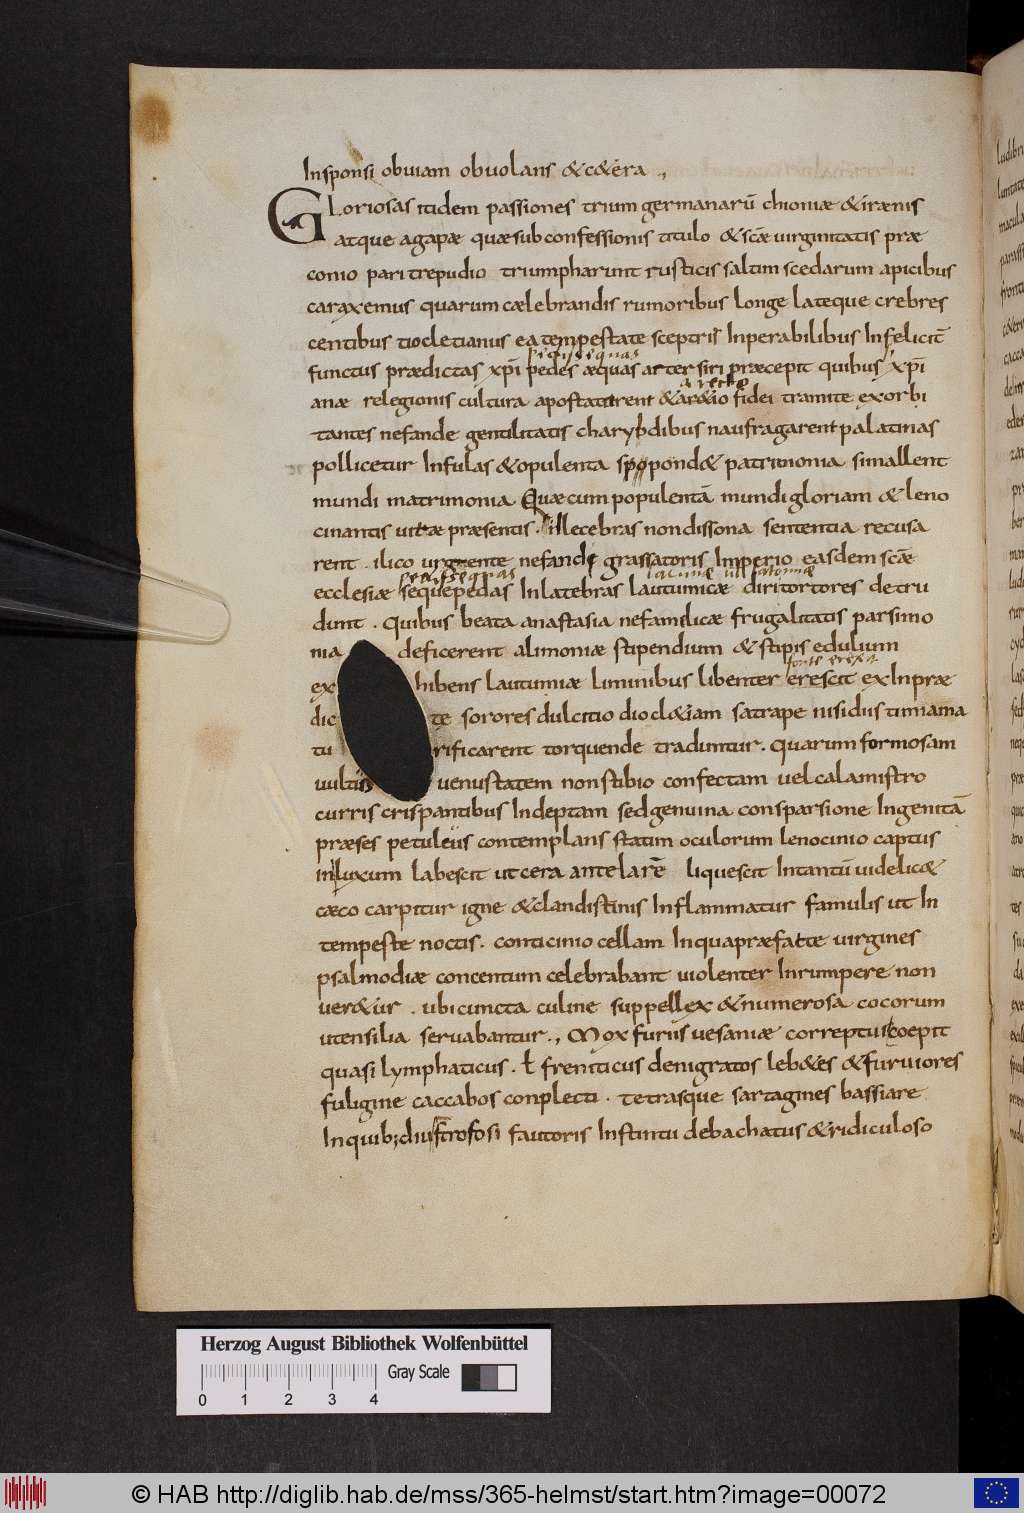 Insponsi obuiam obuolans &c&era .,
Gloriosas itidem passiones trium germanarū chioniæ & irænis
atque agapæ quæ sub confessionis titulo & scæ uirginitatis præ
conio pari trepudio triumpharunt rusticis saltim scedarum apicibus
caraxemus quarum cælebrandis rumoribus longe lateque crebres
centibus tiocletianus ea tempestate sceptris Inperabilibus Infelicit̄
pedissequas
functus prædictas xp̄i pedes æquas arcersiri præcepit quibus xp̄i
anæ relegionis cultura apostatarent & fidei tramite exorbi
tantes nefande gentilitatis charybdibus naufragarent palatinas
pollicetur Infulas & opulenta spopond& patrimonia simallent
mundi matrimonia Quæ cum populentā mundi gloriam & leno
cinantis uitæ præsentis . illecebras non dissona sententia recusa
rent . ilico urgente nefandi grassatoris Imperio easdem scæ
pedissequas
ecclesiæ sequepedas In latebras lautumicæ diri tortores detru
dunt . Quibus beata anastasia nefamelicæ frugalitatis parsimo
nia deficerent alimoniæ stipendium & stipis edulium
forte erexit
ex hibens lautumiæ liminibus libenter crescit ex In præ
dic te sorores dulcitio diocl&iam satrape nisi dus timiama
tu rificarent torquende traduntur . quarum formosam
uultus uenustatem non stibio confectam uel calamistro
curris crispantibus Indeptam sed genuina consparsione Ingenitā
præses petuleus contemplans statim oculorum lenocinio captus
in luxum labescit ut cera ante larē liquescit Intantū uidelicæ
cæco carpitur igne & clandistinis Inflammatur famulis ut In
tempeste noctis . conticinio cellam In qua præfatæ uirgines
psalmodiæ concentum celebrabant uiolenter Inrumpere non
uer&ur . ubi cuncta culine suppellex & numerosa cocorum
utensilia seruabantur ., Mox furiis uesaniæ correptus coepit
quasi lymphaticus . ł freniticus denigratos leb&es & furuiores
fuligine caccabos conplecti . tetrasque sartagines bassiare
In quib; fautoris Instintu debachatus & ridiculoso
Herzog August Bibliothek Wolfenbüttel
Gray Scale
0 1 2 3 4
© HAB http://diglib.hab.de/mss/365-helmst/start.htm?image=00072